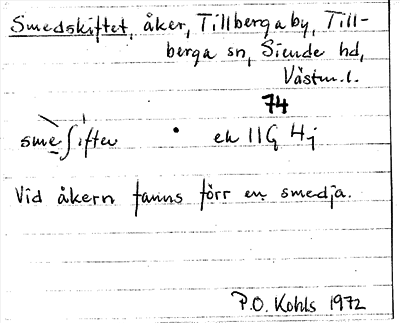 Smedskiftet, åker, Tillberga by, Till-
berga sn, Siende hd,
Västm.l.
74
ek 11G 4j
Vid åkern fanns förr en smedja.
P.O. Kohls 1972